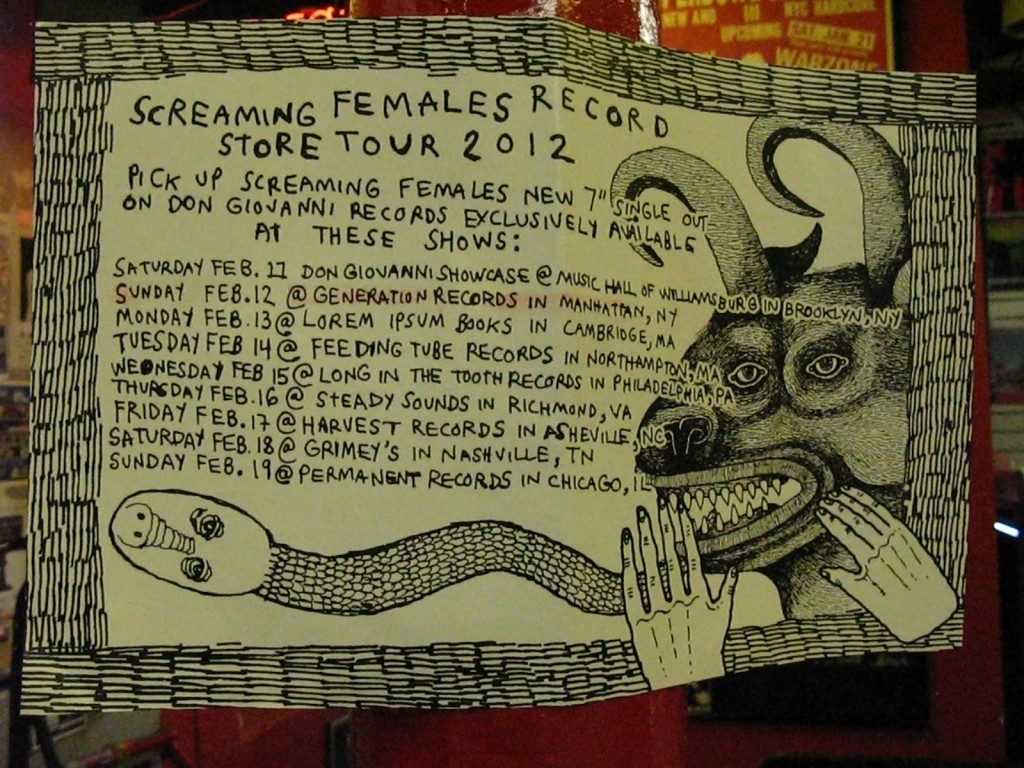 NEW AND
UPCOMING
III
NYC HARDCORE
SAT. JAN. 21
WARZONE
SCREAMING FEMALES RECORD
STORE TOUR 2012
PICK UP SCREAMING FEMALES NEW 7" SINGLE OUT
ON DON GIOVANNI RECORDS EXCLUSIVELY AVAILABLE
AT THESE SHOWS:
SATURDAY FEB. 11 DON GIOVANNI SHOWCASE @ MUSIC HALL OF WILLIAMSBURG IN BROOKLYN, NY
SUNDAY FEB.12 @ GENERATION RECORDS IN MANHATTAN, NY
MONDAY FEB.13 @ LOREM IPSUM BOOKS IN CAMBRIDGE, MA
TUESDAY FEB 14 @ FEEDING TUBE RECORDS IN NORTHAMPTON, MA
WEDNESDAY FEB 15 @ LONG IN THE TOOTH RECORDS IN PHILADELPHIA, PA
THURSDAY FEB.16 @ STEADY SOUNDS IN RICHMOND, VA
FRIDAY FEB.17 @ HARVEST RECORDS IN ASHEVILLE, NC
SATURDAY FEB.18 @ GRIMEY'S IN NASHVILLE, TN
SUNDAY FEB. 19 @ PERMANENT RECORDS IN CHICAGO, IL